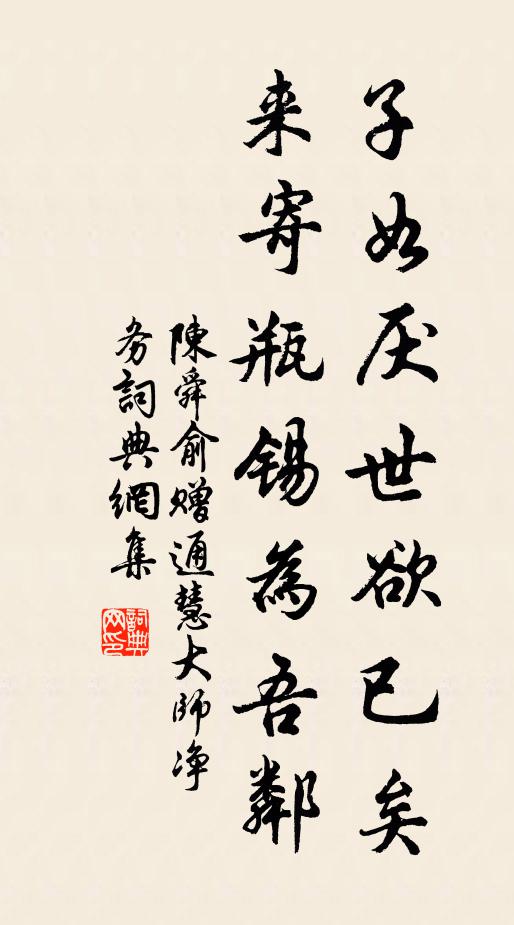 子如厌世欲已矣
来寄瓶锡為吾鄰
陳舜俞贈通慧大師净
务詞典網集
詞典网印